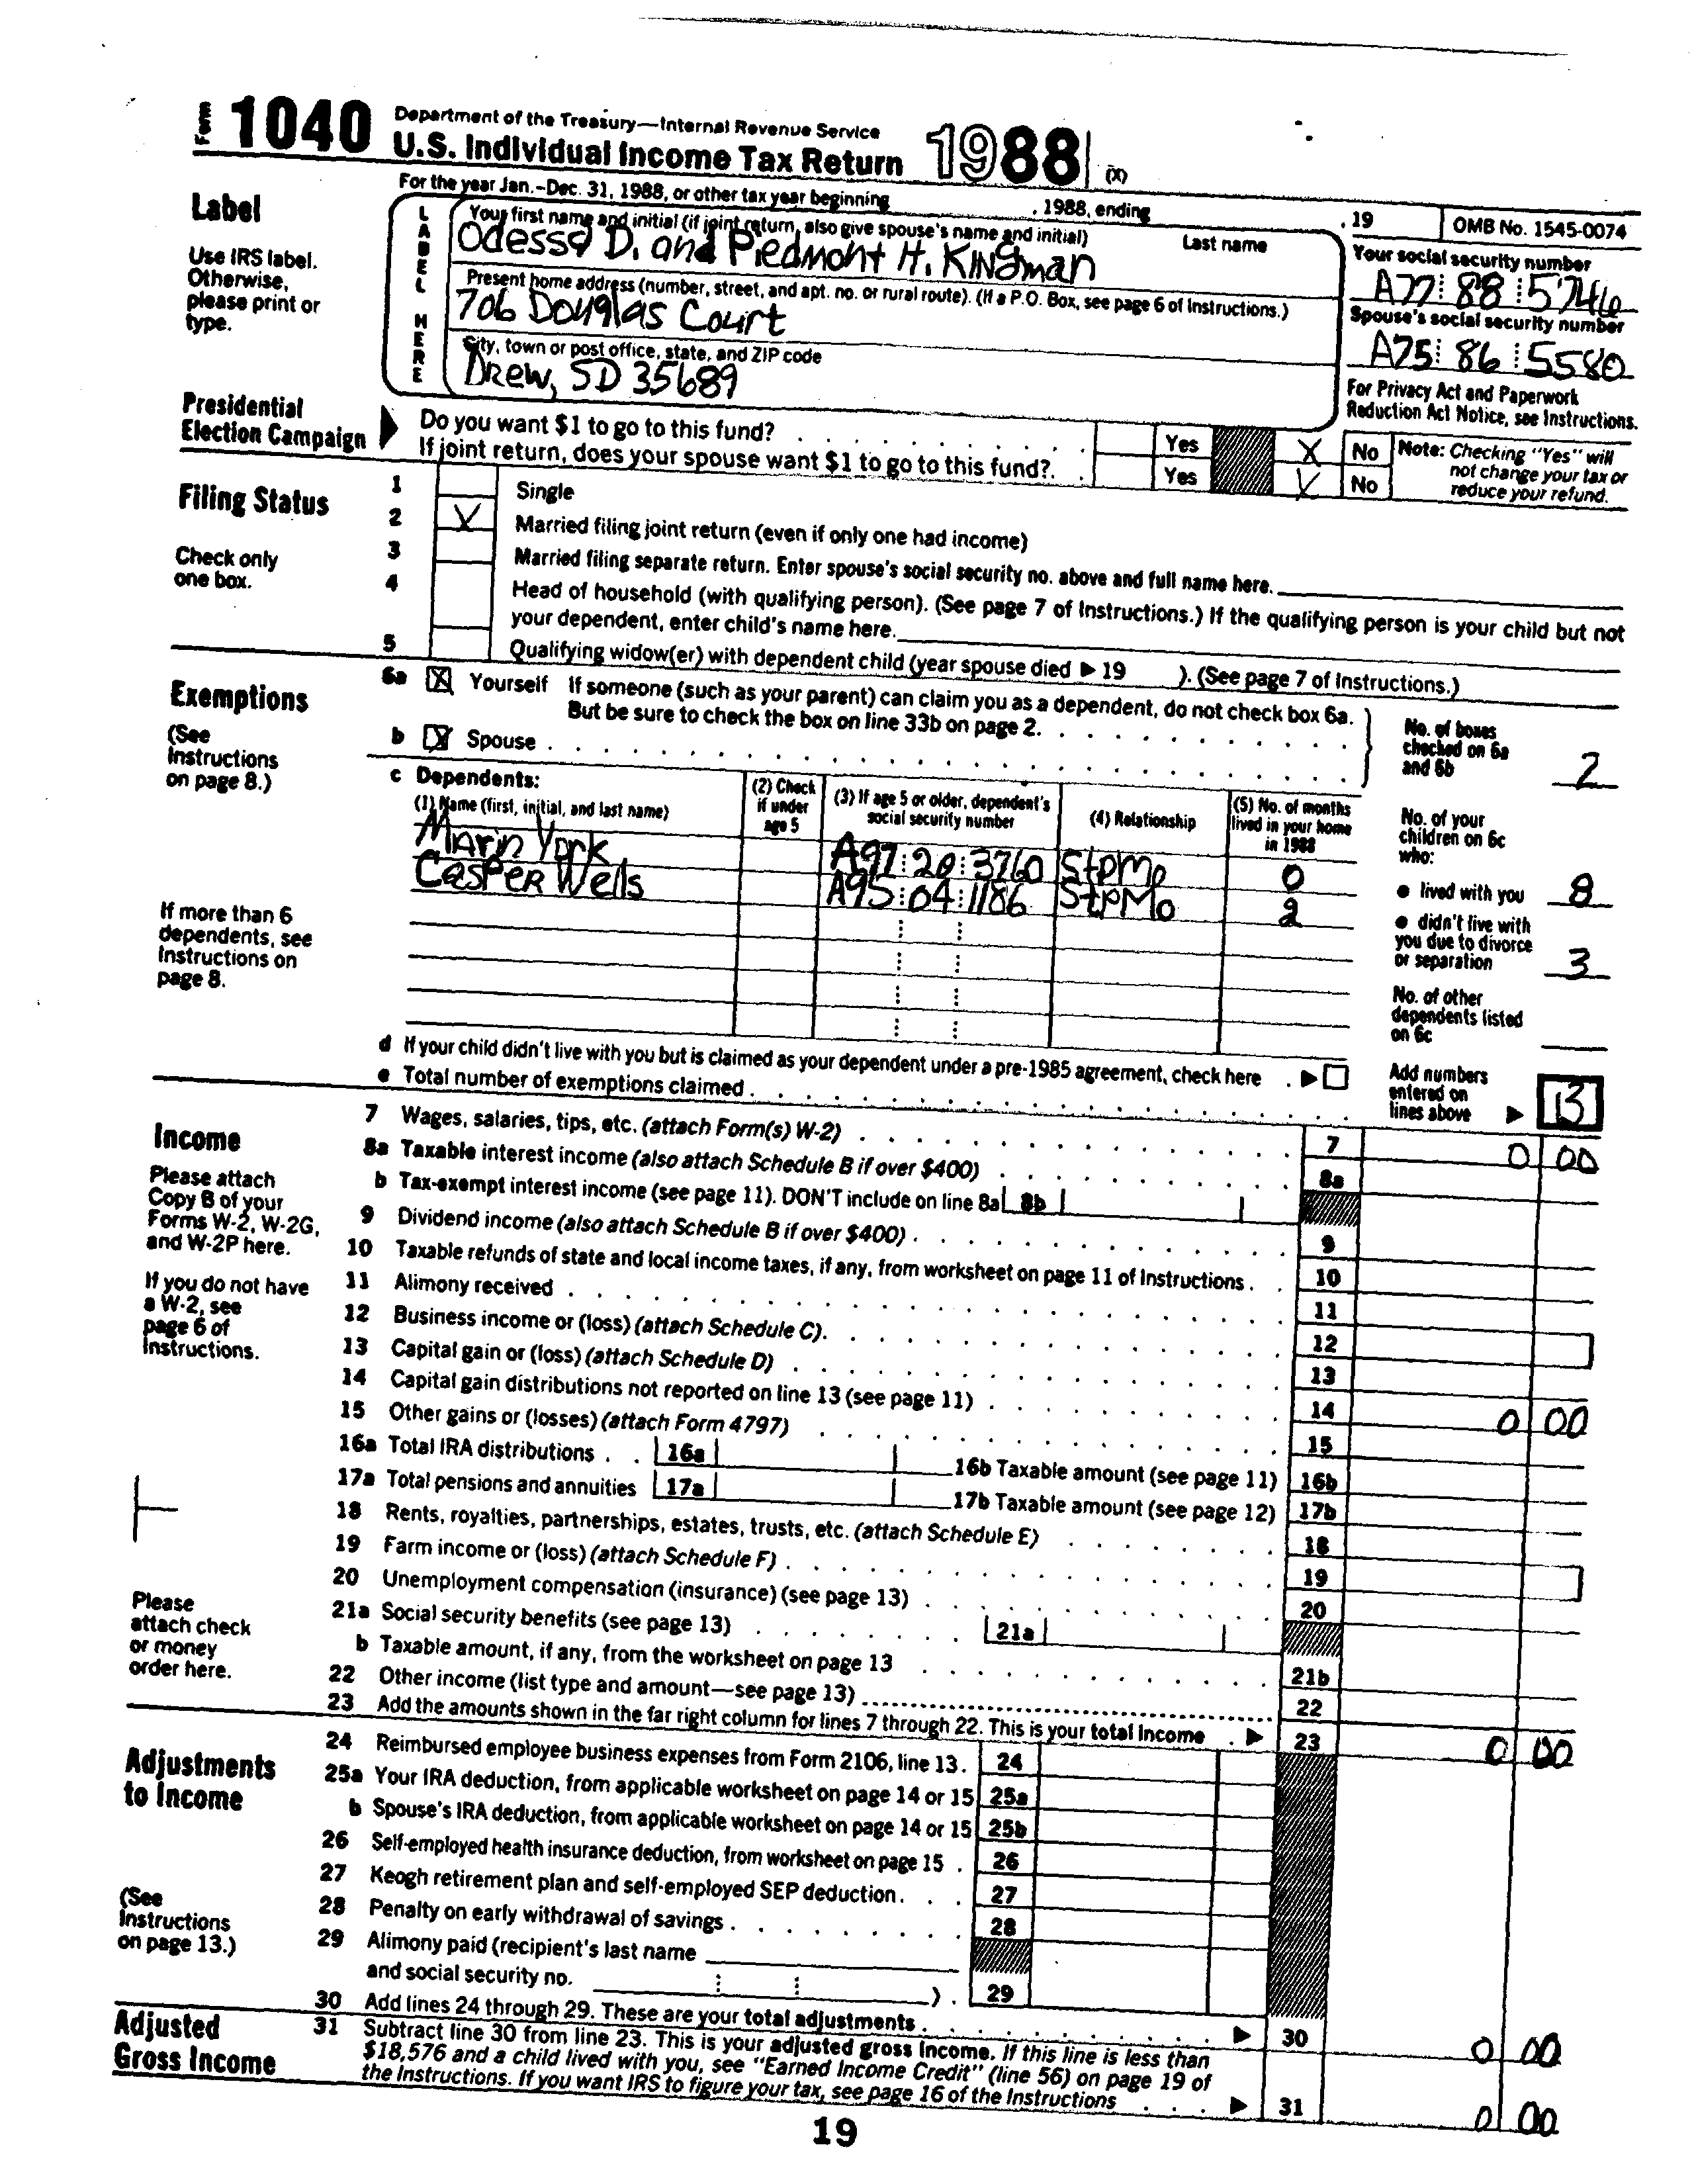 Form 1040 Department of the Treasury—Internal Revenue Service
U.S. Individual Income Tax Return 1988 (X)
For the year Jan.-Dec. 31, 1988, or other tax year beginning , 1988, ending , 19 OMB No. 1545-0074
Label
Use IRS label.
Otherwise,
please print or
type.
LABEL HERE
Your first name and initial (if joint return, also give spouse's name and initial) Last name
Odessa D. and Piedmont H. Kingman
Your social security number
A77 88 5746
Present home address (number, street, and apt. no. or rural route). (If a P.O. Box, see page 6 of Instructions.)
706 Douglas Court
Spouse's social security number
A75 86 5580
City, town or post office, state, and ZIP code
Drew, SD 35689
For Privacy Act and Paperwork
Reduction Act Notice, see Instructions.
Presidential
Election Campaign
Do you want $1 to go to this fund? Yes X No
If joint return, does your spouse want $1 to go to this fund? Yes X No
Note: Checking "Yes" will
not change your tax or
reduce your refund.
Filing Status
Check only
one box.
1 Single
2 X Married filing joint return (even if only one had income)
3 Married filing separate return. Enter spouse's social security no. above and full name here.
4 Head of household (with qualifying person). (See page 7 of Instructions.) If the qualifying person is your child but not
your dependent, enter child's name here.
5 Qualifying widow(er) with dependent child (year spouse died ▶ 19 ). (See page 7 of Instructions.)
Exemptions
(See
Instructions
on page 8.)
6a X Yourself If someone (such as your parent) can claim you as a dependent, do not check box 6a.
But be sure to check the box on line 33b on page 2.
b X Spouse
No. of boxes
checked on 6a
and 6b 2
c Dependents:
(1) Name (first, initial, and last name)
(2) Check
if under
age 5
(3) If age 5 or older, dependent's
social security number
(4) Relationship
(5) No. of months
lived in your home
in 1988
Marin York A97 20 3760 StpMo 0
Casper Wells A95 04 1186 StpMo 2
No. of your
children on 6c
who:
● lived with you 8
● didn't live with
you due to divorce
or separation 3
No. of other
dependents listed
on 6c
If more than 6
dependents, see
Instructions on
page 8.
d If your child didn't live with you but is claimed as your dependent under a pre-1985 agreement, check here ▶
e Total number of exemptions claimed
Add numbers
entered on
lines above ▶ 13
Income
Please attach
Copy B of your
Forms W-2, W-2G,
and W-2P here.
If you do not have
a W-2, see
page 6 of
Instructions.
7 Wages, salaries, tips, etc. (attach Form(s) W-2) 7 0 00
8a Taxable interest income (also attach Schedule B if over $400) 8a
b Tax-exempt interest income (see page 11). DON'T include on line 8a 8b
9 Dividend income (also attach Schedule B if over $400) 9
10 Taxable refunds of state and local income taxes, if any, from worksheet on page 11 of Instructions 10
11 Alimony received 11
12 Business income or (loss) (attach Schedule C) 12
13 Capital gain or (loss) (attach Schedule D) 13
14 Capital gain distributions not reported on line 13 (see page 11) 14 0 00
15 Other gains or (losses) (attach Form 4797) 15
16a Total IRA distributions 16a 16b Taxable amount (see page 11) 16b
17a Total pensions and annuities 17a 17b Taxable amount (see page 12) 17b
18 Rents, royalties, partnerships, estates, trusts, etc. (attach Schedule E) 18
19 Farm income or (loss) (attach Schedule F) 19
20 Unemployment compensation (insurance) (see page 13) 20
21a Social security benefits (see page 13) 21a
b Taxable amount, if any, from the worksheet on page 13 21b
22 Other income (list type and amount—see page 13) 22
23 Add the amounts shown in the far right column for lines 7 through 22. This is your total income ▶ 23 0 00
Please
attach check
or money
order here.
Adjustments
to Income
(See
Instructions
on page 13.)
24 Reimbursed employee business expenses from Form 2106, line 13. 24
25a Your IRA deduction, from applicable worksheet on page 14 or 15 25a
b Spouse's IRA deduction, from applicable worksheet on page 14 or 15 25b
26 Self-employed health insurance deduction, from worksheet on page 15 26
27 Keogh retirement plan and self-employed SEP deduction 27
28 Penalty on early withdrawal of savings 28
29 Alimony paid (recipient's last name
and social security no. ) 29
30 Add lines 24 through 29. These are your total adjustments ▶ 30 0 00
Adjusted
Gross Income
31 Subtract line 30 from line 23. This is your adjusted gross income. If this line is less than
$18,576 and a child lived with you, see "Earned Income Credit" (line 56) on page 19 of
the Instructions. If you want IRS to figure your tax, see page 16 of the Instructions ▶ 31 0 00
19